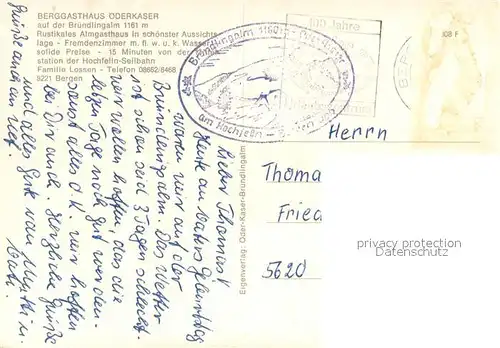 BERGGASTHAUS ODERKASER
auf der Bründlingalm 1161 m
Rustikales Almgasthaus in schönster Aussichts-
lage - Fremdenzimmer m. fl. w. u. k. Wasser
solide Preise - 15 Minuten von der
station der Hochfelln-Seilbahn
Familie Lossen - Telefon 08662/8468
8221 Bergen
Bründlingalm 1160m
am Hochfelln
100 Jahre
108 F
Lieber Thomas!
Heute an Vaters Geburtstag
waren wir auf der
Bründlingalm. Das Wetter
ist schon seit 3 Tagen schlecht.
Wir wollen hoffen, das die
letzen Tage noch gut werden.
Sonst alles O.K. wir hoffen
bei Dir auch. Herzliche Grüße
und alles Gute von Mutti u.
Vati.
Grüße auch an
Eigenverlag: Oder-Kaser-Bründlingalm
Herrn
Thoma
Fried
5620
privacy protection
DATENSCHUTZ